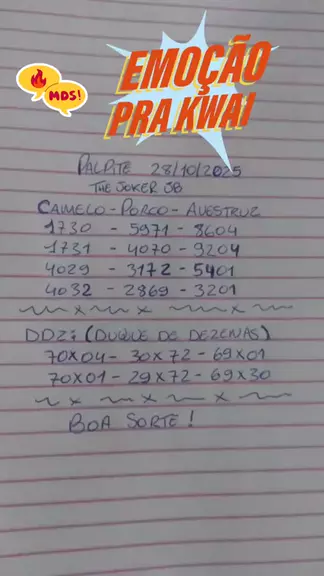 MDS!
EMOÇÃO
PRA KWAI
PALPITE 28/10/2025
THE JOKER JB
CAMELO - PORCO - AVESTRUZ
1730 - 5971 - 8604
1731 - 4070 - 9204
4029 - 3172 - 5401
4032 - 2869 - 3201
DDZ: (DUQUE DE DEZENAS)
70X04 - 30X72 - 69X01
70X01 - 29X72 - 69X30
BOA SORTE!